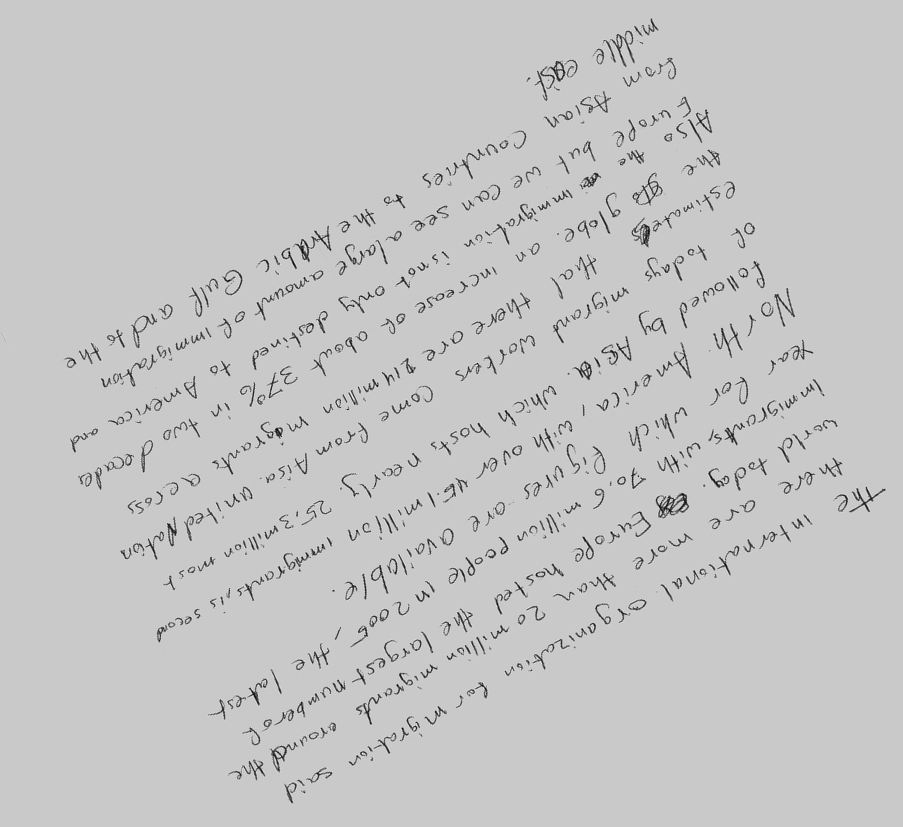 The international organization for migration said
there are more than 20 million migrants around the
world today. Europe hosted the largest number of
immigrants, with 70,6 million people in 2005, the latest
year for which figures are available.
North America, with over 45.1 million immigrants, is second
followed by Asia. which hosts nearly. 25,3 million most
of todays migrand workers come from Aisa. United Nation
estimates that there are 214 million migrants across
the globe. an increase of about 37% in two decades
Also the immigration is not only destined to America and
Europe but we can see a large amount of immigration
from Asian countries to the Arabic Gulf and to the
middle east.